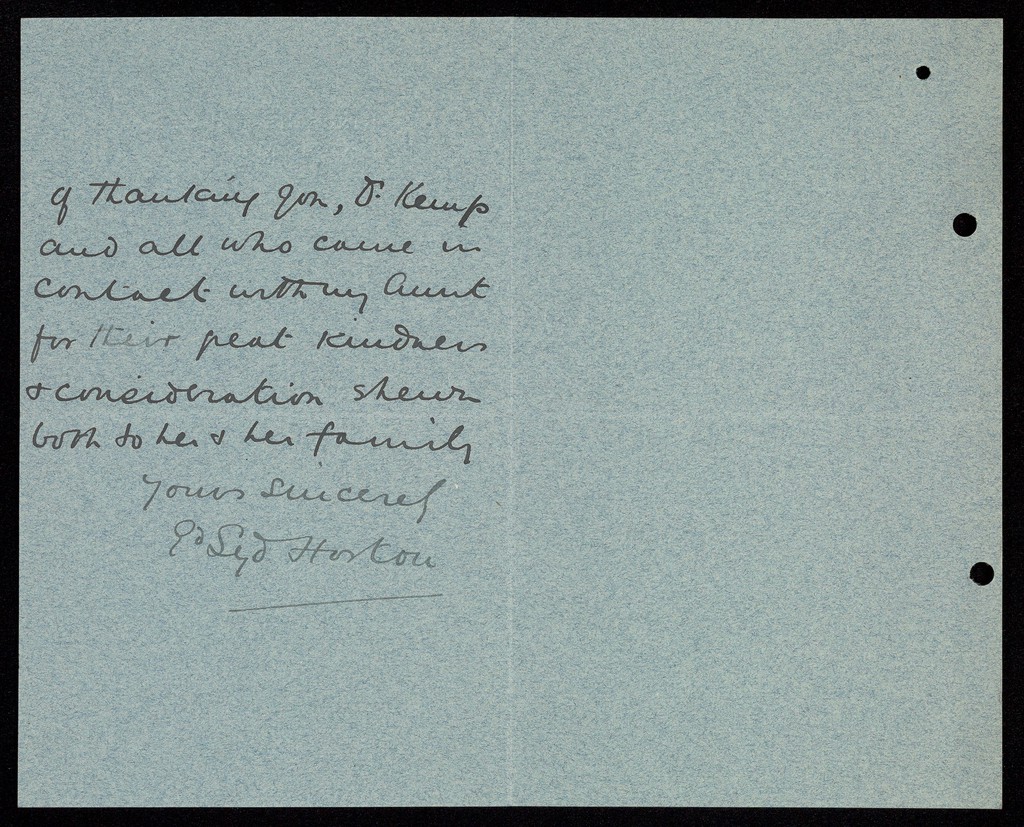 of thanking you, Dr. Kemp
and all who came in
contact with my Aunt
for their great kindness
& consideration shewn
both to her & her family
Yours sincerely
Syd. Horton